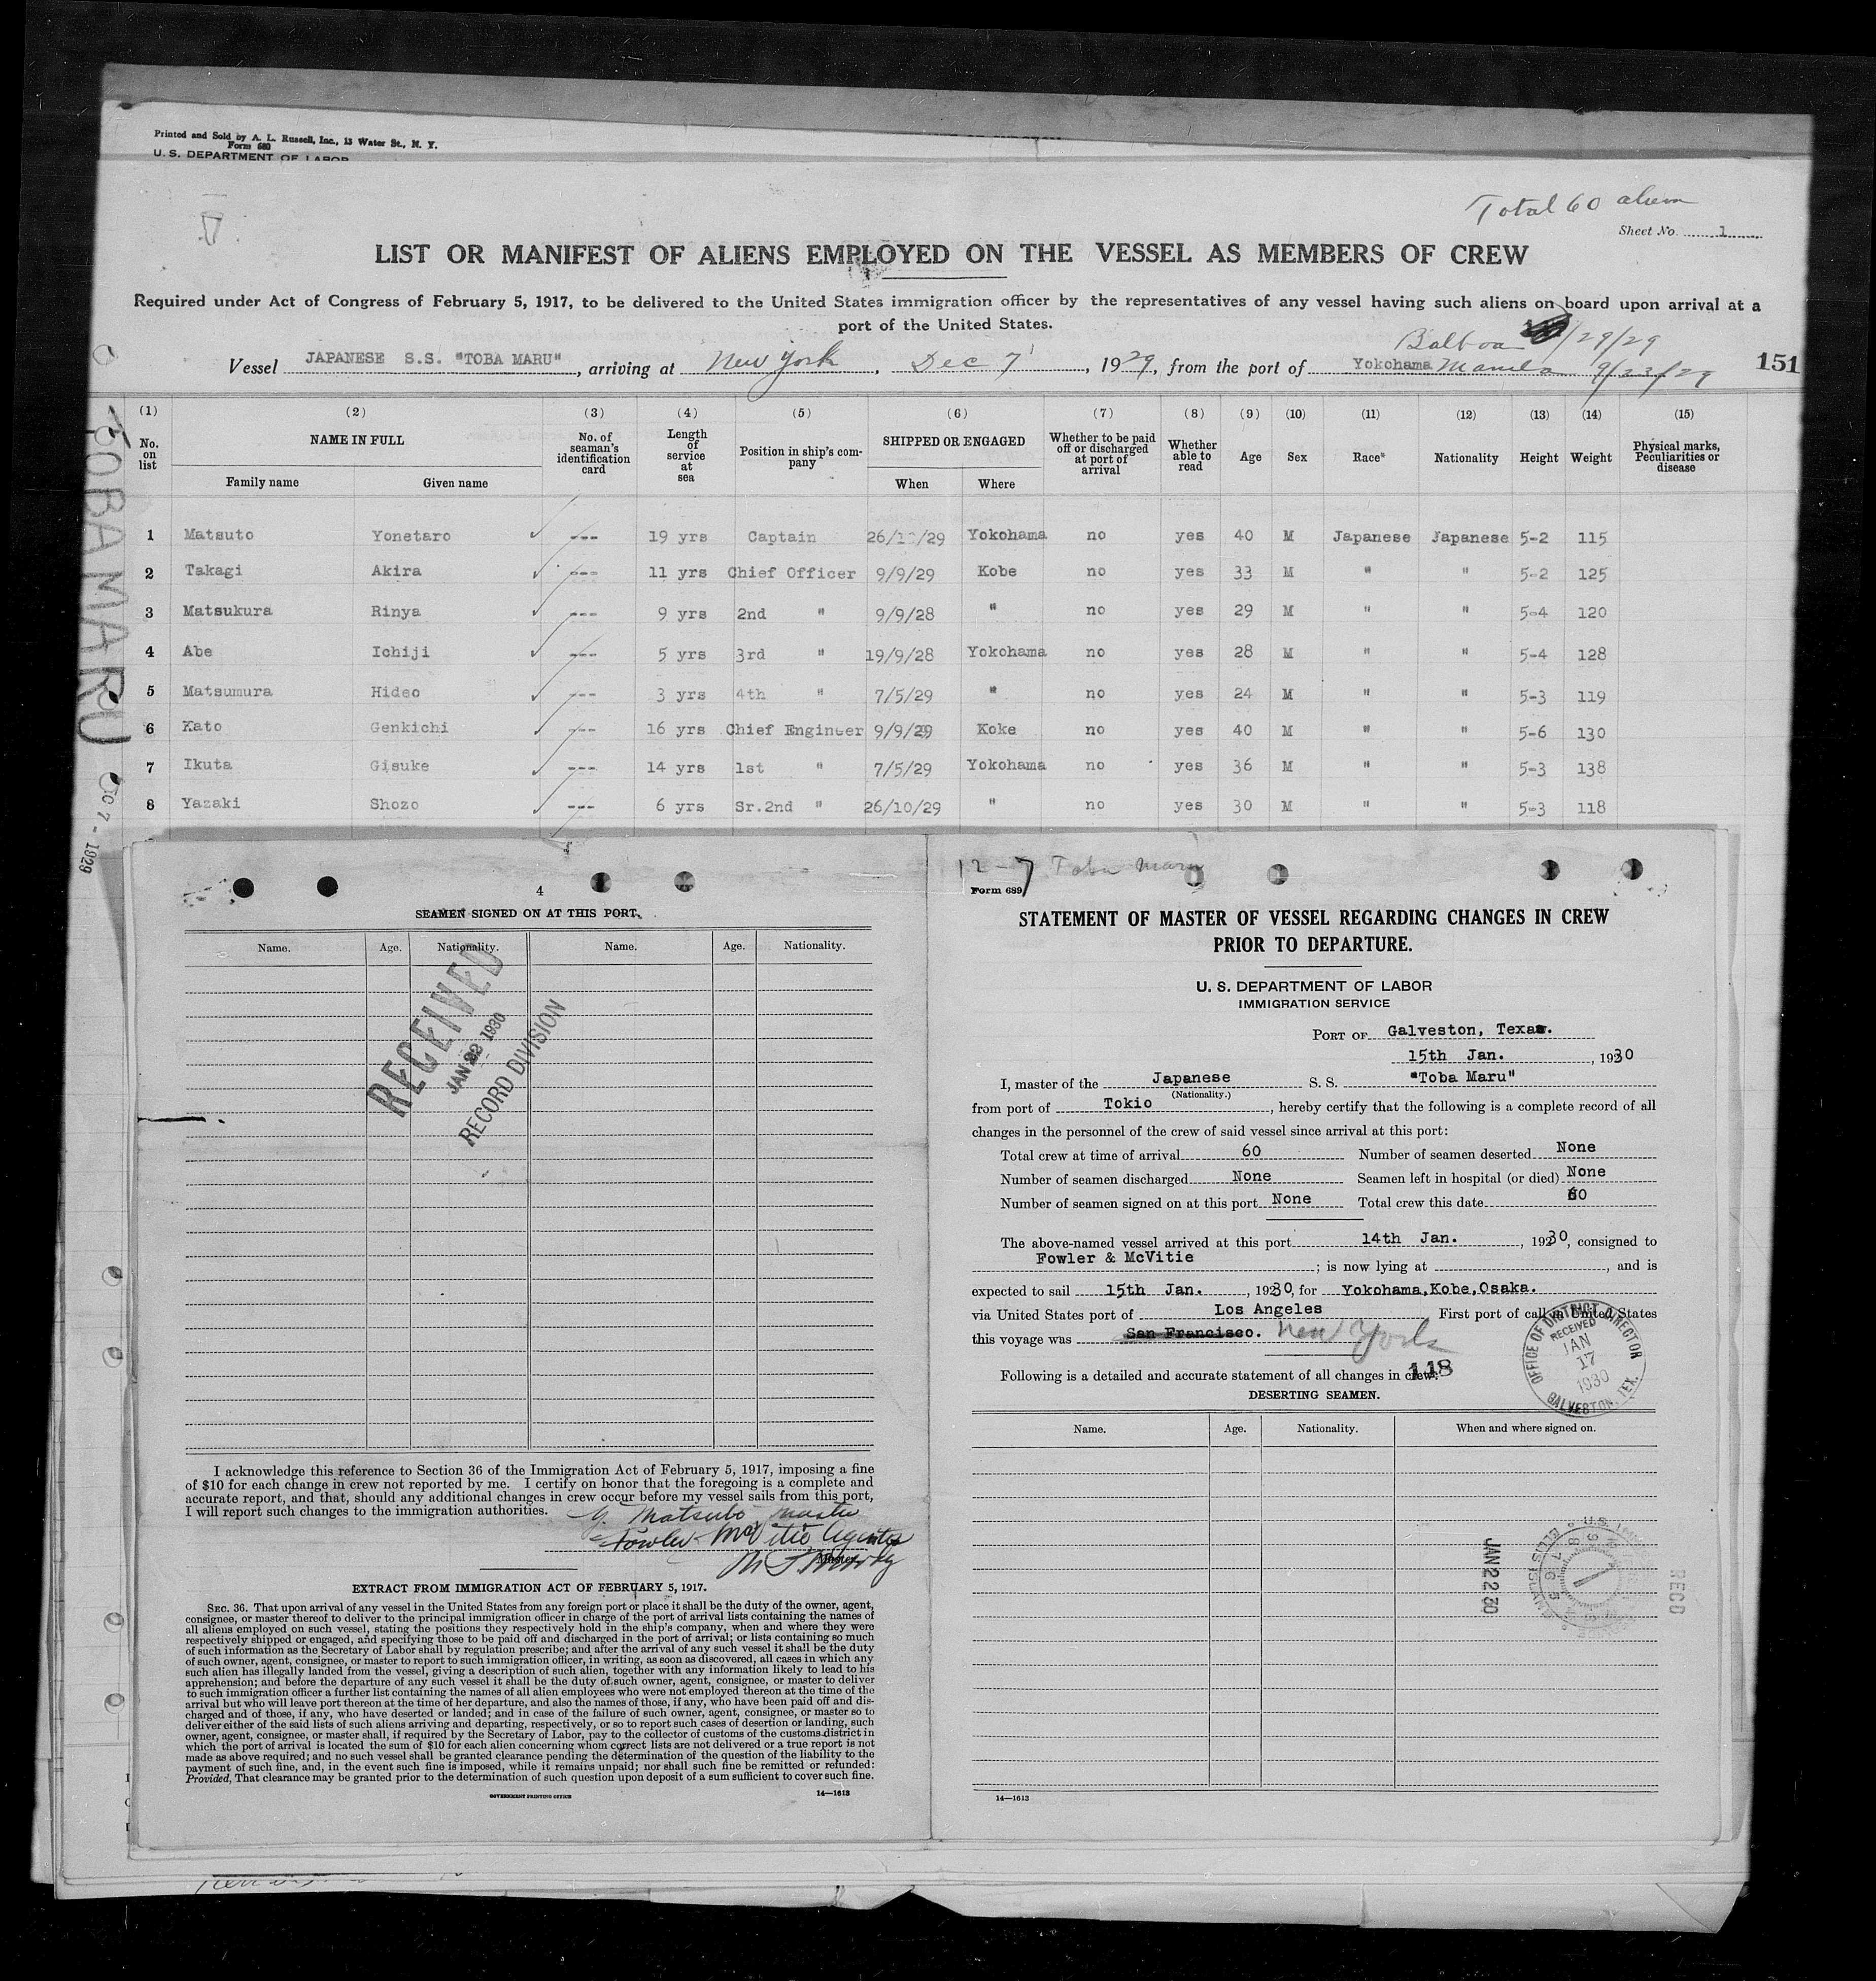 Printed and Sold by A. L. Russell, Inc., 13 Water St., N. Y.
Form 680
U. S. DEPARTMENT OF LABOR
Total 60 aliens
Sheet No. 1
LIST OR MANIFEST OF ALIENS EMPLOYED ON THE VESSEL AS MEMBERS OF CREW
Required under Act of Congress of February 5, 1917, to be delivered to the United States immigration officer by the representatives of any vessel having such aliens on board upon arrival at a
port of the United States.
Balboa /29/29
Vessel JAPANESE S.S. "TOBA MARU", arriving at New York, Dec 7, 1929, from the port of Yokohama Manila 9/23/29
151
(1) (2) (3) (4) (5) (6) (7) (8) (9) (10) (11) (12) (13) (14) (15)
No. on list NAME IN FULL Family name Given name No. of seaman's identification card Length of service at sea Position in ship's company SHIPPED OR ENGAGED When Where Whether to be paid off or discharged at port of arrival Whether able to read Age Sex Race* Nationality Height Weight Physical marks, Peculiarities or disease
1 Matsuto Yonetaro --- 19 yrs Captain 26/10/29 Yokohama no yes 40 M Japanese Japanese 5-2 115
2 Takagi Akira --- 11 yrs Chief Officer 9/9/29 Kobe no yes 33 M " " 5-2 125
3 Matsukura Rinya --- 9 yrs 2nd " 9/9/28 " no yes 29 M " " 5-4 120
4 Abe Ichiji --- 5 yrs 3rd " 19/9/28 Yokohama no yes 28 M " " 5-4 128
5 Matsumura Hideo --- 3 yrs 4th " 7/5/29 " no yes 24 M " " 5-3 119
6 Kato Genkichi --- 16 yrs Chief Engineer 9/9/29 Koke no yes 40 M " " 5-6 130
7 Ikuta Gisuke --- 14 yrs 1st " 7/5/29 Yokohama no yes 36 M " " 5-3 138
8 Yazaki Shozo --- 6 yrs Sr.2nd " 26/10/29 " no yes 30 M " " 5-3 118
TOBA MARU
7 - 1929
4
SEAMEN SIGNED ON AT THIS PORT.
Name. Age. Nationality. Name. Age. Nationality.
RECEIVED
JAN 22 1930
RECORD DIVISION
I acknowledge this reference to Section 36 of the Immigration Act of February 5, 1917, imposing a fine
of $10 for each change in crew not reported by me. I certify on honor that the foregoing is a complete and
accurate report, and that, should any additional changes in crew occur before my vessel sails from this port,
I will report such changes to the immigration authorities.
Y. Matsuto master
Fowler McVitie Agents
Master.
EXTRACT FROM IMMIGRATION ACT OF FEBRUARY 5, 1917.
SEC. 36. That upon arrival of any vessel in the United States from any foreign port or place it shall be the duty of the owner, agent,
consignee, or master thereof to deliver to the principal immigration officer in charge of the port of arrival lists containing the names of
all aliens employed on such vessel, stating the positions they respectively hold in the ship's company, when and where they were
respectively shipped or engaged, and specifying those to be paid off and discharged in the port of arrival; or lists containing so much
of such information as the Secretary of Labor shall by regulation prescribe; and after the arrival of any such vessel it shall be the duty
of such owner, agent, consignee, or master to report to such immigration officer, in writing, as soon as discovered, all cases in which any
such alien has illegally landed from the vessel, giving a description of such alien, together with any information likely to lead to his
apprehension; and before the departure of any such vessel it shall be the duty of such owner, agent, consignee, or master to deliver
to such immigration officer a further list containing the names of all alien employees who were not employed thereon at the time of the
arrival but who will leave port thereon at the time of her departure, and also the names of those, if any, who have been paid off and dis-
charged and of those, if any, who have deserted or landed; and in case of the failure of such owner, agent, consignee, or master so to
deliver either of the said lists of such aliens arriving and departing, respectively, or so to report such cases of desertion or landing, such
owner, agent, consignee, or master shall, if required by the Secretary of Labor, pay to the collector of customs of the customs district in
which the port of arrival is located the sum of $10 for each alien concerning whom correct lists are not delivered or a true report is not
made as above required; and no such vessel shall be granted clearance pending the determination of the question of the liability to the
payment of such fine, and, in the event such fine is imposed, while it remains unpaid; nor shall such fine be remitted or refunded:
Provided, That clearance may be granted prior to the determination of such question upon deposit of a sum sufficient to cover such fine.
GOVERNMENT PRINTING OFFICE
14—1613
12-7 Toba Maru
Form 689
STATEMENT OF MASTER OF VESSEL REGARDING CHANGES IN CREW
PRIOR TO DEPARTURE.
U. S. DEPARTMENT OF LABOR
IMMIGRATION SERVICE
PORT OF Galveston, Texas.
15th Jan., 1930
I, master of the Japanese S. S. "Toba Maru"
(Nationality.)
from port of Tokio, hereby certify that the following is a complete record of all
changes in the personnel of the crew of said vessel since arrival at this port:
Total crew at time of arrival 60 Number of seamen deserted None
Number of seamen discharged None Seamen left in hospital (or died) None
Number of seamen signed on at this port None Total crew this date 60
The above-named vessel arrived at this port 14th Jan., 1930, consigned to
Fowler & McVitie; is now lying at , and is
expected to sail 15th Jan., 1930, for Yokohama,Kobe,Osaka.
via United States port of Los Angeles First port of call in United States
this voyage was San Francisco. New York
Following is a detailed and accurate statement of all changes in crew:
118
OFFICE OF DISTRICT DIRECTOR
RECEIVED
JAN
17
1930
GALVESTON, TEX.
DESERTING SEAMEN.
Name. Age. Nationality. When and where signed on.
JAN 22 30
RECD
14—1613